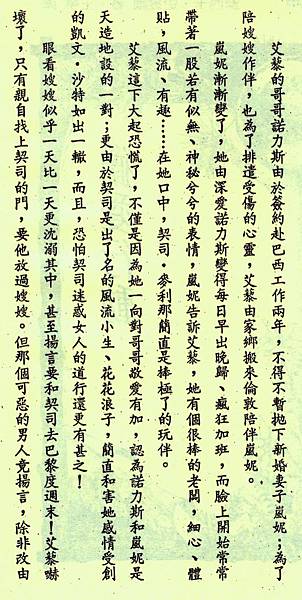 艾藜的哥哥諾力斯由於簽約赴巴西工作兩年，不得不暫拋下新婚妻子嵐妮；為了
陪嫂嫂作伴，也為了排遣受傷的心靈，艾藜由家鄉搬來倫敦陪伴嵐妮。
嵐妮漸漸變了，她由深愛諾力斯變得每日早出晚歸、瘋狂加班，而臉上開始常常
帶著一股若有似無、神秘兮兮的表情，嵐妮告訴艾藜，她有個很棒的老闆，細心、體
貼，風流、有趣……在她口中，契司·麥利那簡直是棒極了的玩伴。
艾藜這下大起恐慌了，不僅是因為她一向對哥哥敬愛有加，認為諾力斯和嵐妮是
天造地設的一對；更由於契司是出了名的風流小生、花花浪子，簡直和害她感情受創
的凱文·沙特如出一轍，而且，恐怕契司迷惑女人的道行還更有甚之！
眼看嫂嫂似乎一天比一天更沈溺其中，甚至揚言要和契司去巴黎度週末！艾藜嚇
壞了，只有親自找上契司的門，要他放過嫂嫂。但那個可惡的男人竟揚言，除非改由